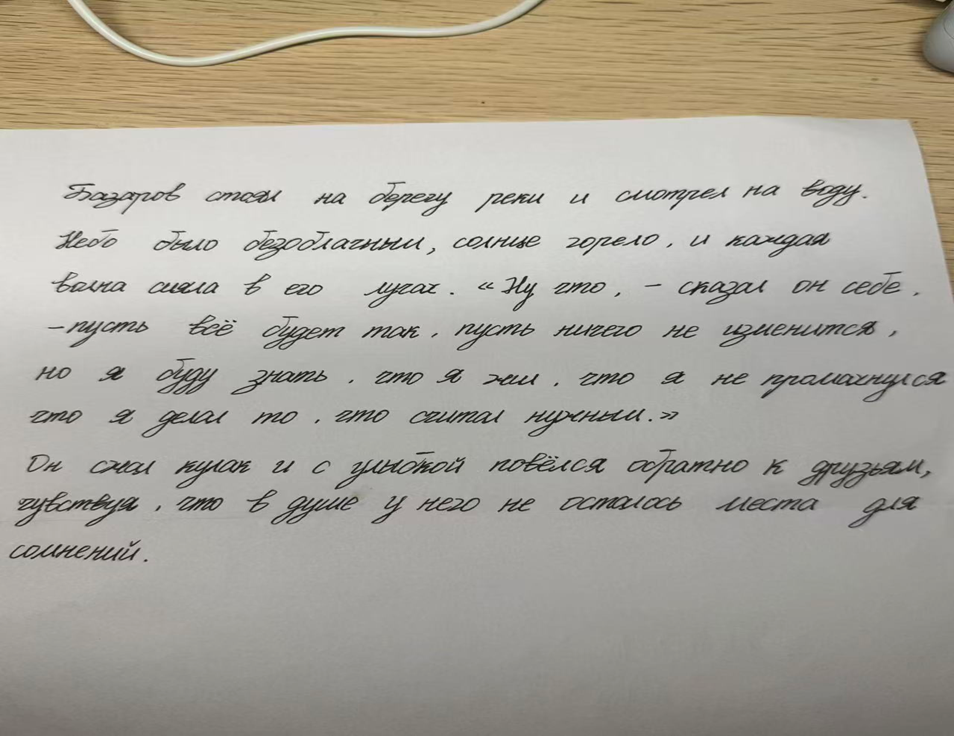 Базаров стоял на берегу реки и смотрел на воду.
Небо было безоблачным, солнце горело, и каждая
волна сияла в его лучах. «Ну что, – сказал он себе,
– пусть всё будет так, пусть ничего не изменится,
но я буду знать, что я жил, что я не промахнулся
что я делал то, что считал нужным.»
Он сжал кулак и с улыбкой повёлся обратно к друзьям,
чувствуя, что в душе у него не осталось места для
сомнений.